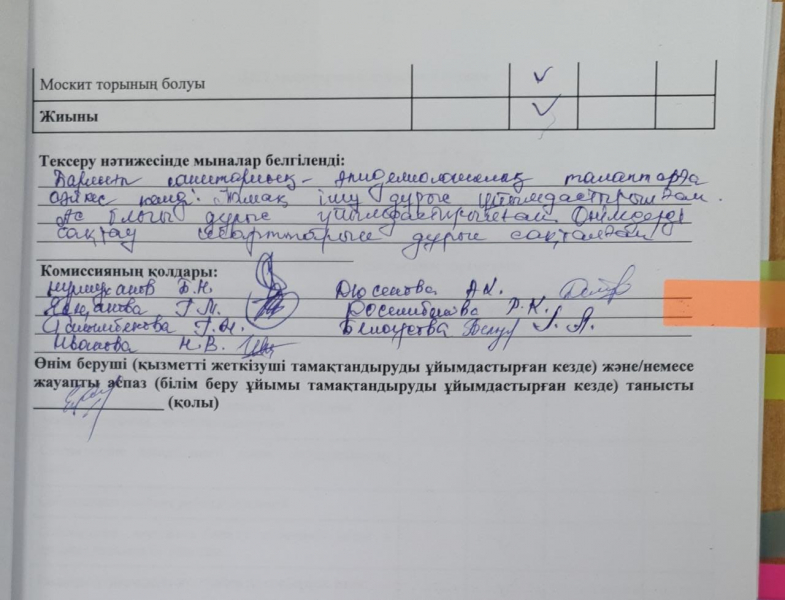 Москит торының болуы
Жиыны
Тексеру нәтижесінде мыналар белгіленді:
Барлығы санитарлық - эпидемиологиялық талаптарға
сәйкес келді. Тамақ ішу дұрыс ұйымдастырылған.
Ас блогы дұрыс ұйымдастырылған. Өнімдерді
сақтау шарттары дұрыс сақталған
Комиссияның қолдары:
Б.Н. Дюсенова А.К.
Г.М. Р.К.
Г.Н. Белоусова Л.А.
Иванова Н.В.
Өнім беруші (қызметті жеткізуші тамақтандыруды ұйымдастырған кезде) және/немесе
жауапты аспаз (білім беру ұйымы тамақтандыруды ұйымдастырған кезде) танысты
(қолы)